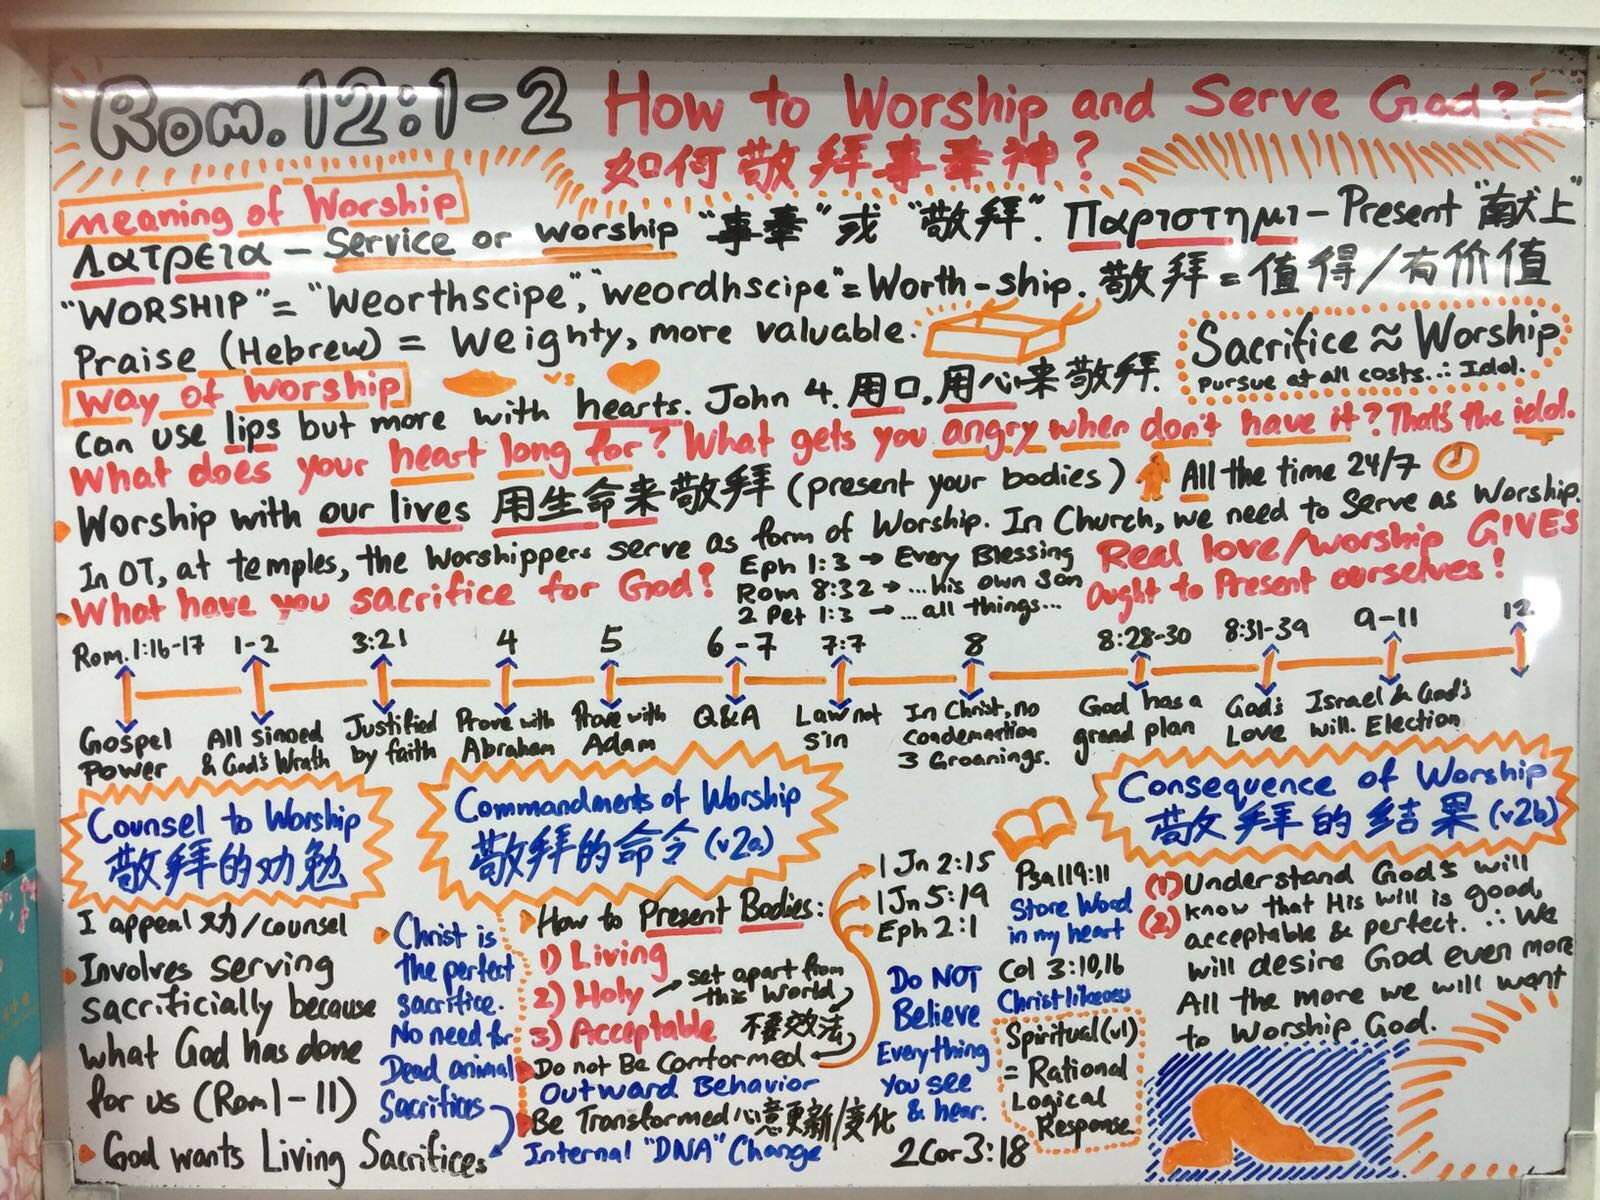 Rom. 12:1-2
How to Worship and Serve God?
如何敬拜事奉神?
Meaning of Worship
Λατρεια - Service or worship "事奉" 或 "敬拜". Παριστημι - Present "献上"
"WORSHIP" = "Weorthscipe", "weordhscipe" = Worth-ship. 敬拜 = 值得/有价值
Praise (Hebrew) = Weighty, more valuable.
Sacrifice ≈ Worship
Pursue at all costs. ∴ Idol.
Way of Worship
vs
Can use lips but more with hearts. John 4. 用口, 用心来敬拜.
What does your heart long for? What gets you angry when don't have it? That's the idol.
Worship with our lives 用生命来敬拜 (present your bodies) All the time 24/7
In OT, at temples, the worshippers serve as form of Worship. In Church, we need to Serve as Worship.
What have you sacrifice for God?
Eph 1:3 → Every Blessing
Rom 8:32 → ... his own Son
2 Pet 1:3 → ... all things...
Real love/worship GIVES
Ought to Present ourselves!
Rom. 1:16-17 1-2 3:21 4 5 6-7 7:7 8 8:28-30 8:31-39 9-11 12
Gospel Power
All sinned & God's Wrath
Justified by faith
Prove with Abraham
Prove with Adam
Q&A
Law not Sin
In Christ, no Condemnation 3 Groanings.
God has a grand plan
God's Love
Israel & God's will. Election
Counsel to Worship
敬拜的劝勉
I appeal 劝/counsel
Involves serving
sacrificially because
what God has done
for us (Rom 1-11)
God wants Living Sacrifices
Christ is
the perfect
sacrifice.
No need for
Dead animal
Sacrifices
Commandments of Worship
敬拜的命令 (v2a)
How to Present Bodies:
1) Living
2) Holy → set apart from
this world
3) Acceptable 不要效法
Do not Be Conformed
Outward Behavior
Be Transformed 心意更新/变化
Internal "DNA" Change
1 Jn 2:15
1 Jn 5:19
Eph 2:1
Do NOT
Believe
Everything
you see
& hear.
2 Cor 3:18
Psa 119:11
Store Word
in my heart
Col 3:10,16
Christlikeness
Spiritual (v1)
= Rational
Logical
Response
Consequence of Worship
敬拜的结果 (v2b)
(1) Understand God's will
(2) know that His will is good,
acceptable & perfect. ∴ We
will desire God even more
All the more we will want
to Worship God.